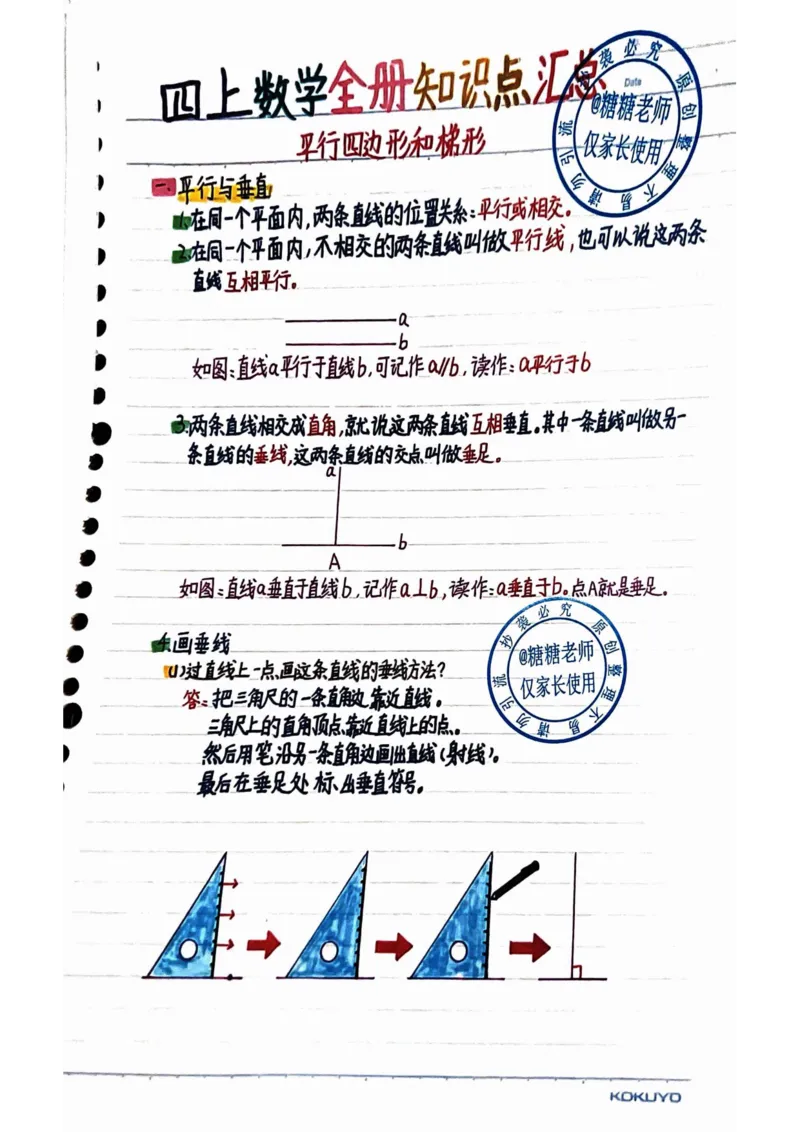 四上数学全册知识点汇总
Date
平行四边形和梯形
抄袭必究 原创整理不易 请勿引流
@糖糖老师
仅家长使用
一、平行与垂直
1.在同一个平面内,两条直线的位置关系:平行或相交。
2.在同一个平面内,不相交的两条直线叫做平行线,也可以说这两条
直线互相平行。
a
b
如图:直线a平行于直线b,可记作a∥b,读作:a平行于b
3.两条直线相交成直角,就说这两条直线互相垂直。其中一条直线叫做另一
条直线的垂线,这两条直线的交点叫做垂足。
a
b
A
如图:直线a垂直于直线b,记作a⊥b,读作:a垂直于b。点A就是垂足。
抄袭必究 原创整理不易 请勿引流
@糖糖老师
仅家长使用
4.画垂线
(1)过直线上一点,画这条直线的垂线方法?
答:把三角尺的一条直角边靠近直线。
三角尺上的直角顶点靠近直线上的点。
然后用笔沿另一条直角边画出直线(射线)。
最后在垂足处标出垂直符号。
KOKUYO